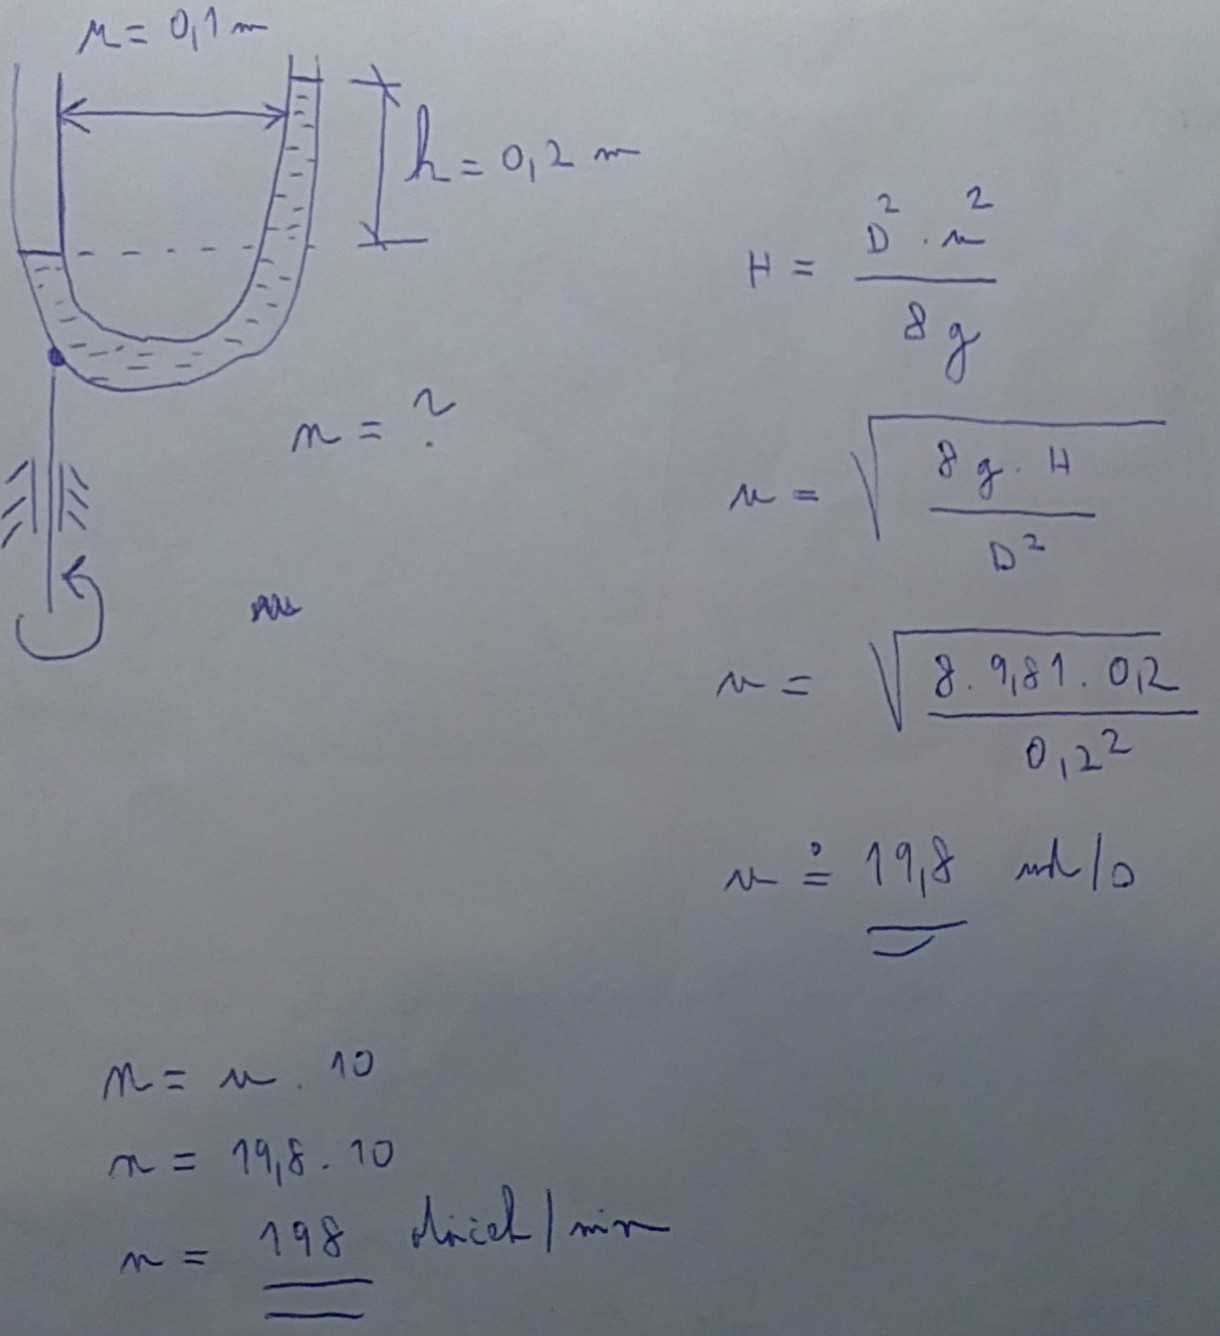 r = 0,1 m
h = 0,2 m
H = D² . u² / 8 g
n = ?
u = √(8 g . H / D²)
u = √(8 . 9,81 . 0,2 / 0,2²)
u ≐ 19,8
n = u . 10
n = 19,8 . 10
n = 198 otáček/min